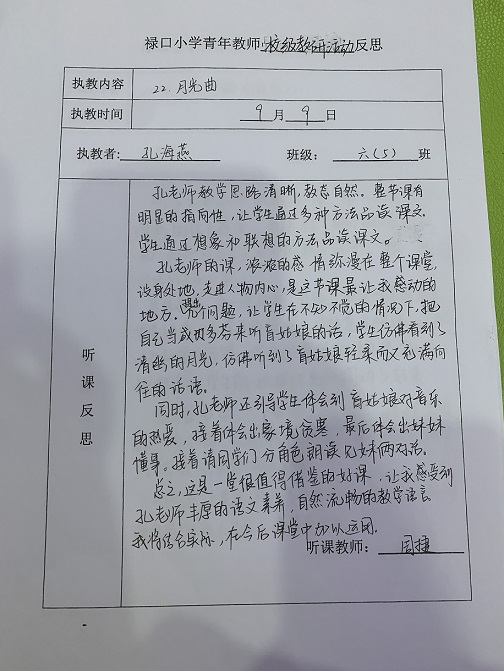 禄口小学青年教师校级教研活动反思
执教内容 22.月光曲
执教时间 9月9日
执教者：孔海燕 班级：六（5）班
听课反思
孔老师教学思路清晰，教态自然。整节课有
明显的指向性，让学生通过多种方法品读课文。
学生通过想象和联想的方法品读课文。
孔老师的课，浓浓的感情弥漫在整个课堂，
设身处地，走进人物内心，是这节课最让我感动的
地方。几个问题，让学生在不知不觉的情况下，把
自己当成贝多芬来听盲姑娘的话，学生仿佛看到了
清幽的月光，仿佛听到了盲姑娘轻柔而又充满向
往的话语。
同时，孔老师还引导学生体会到盲姑娘对音乐
的热爱，接着体会出家境贫寒，最后体会出妹妹
懂事。接着请同学们分角色朗读兄妹俩对话。
总之，这是一堂很值得借鉴的好课，让我感受到
孔老师丰厚的语文素养，自然流畅的教学语言
我将结合实际，在今后课堂中加以运用。
听课教师：周捷